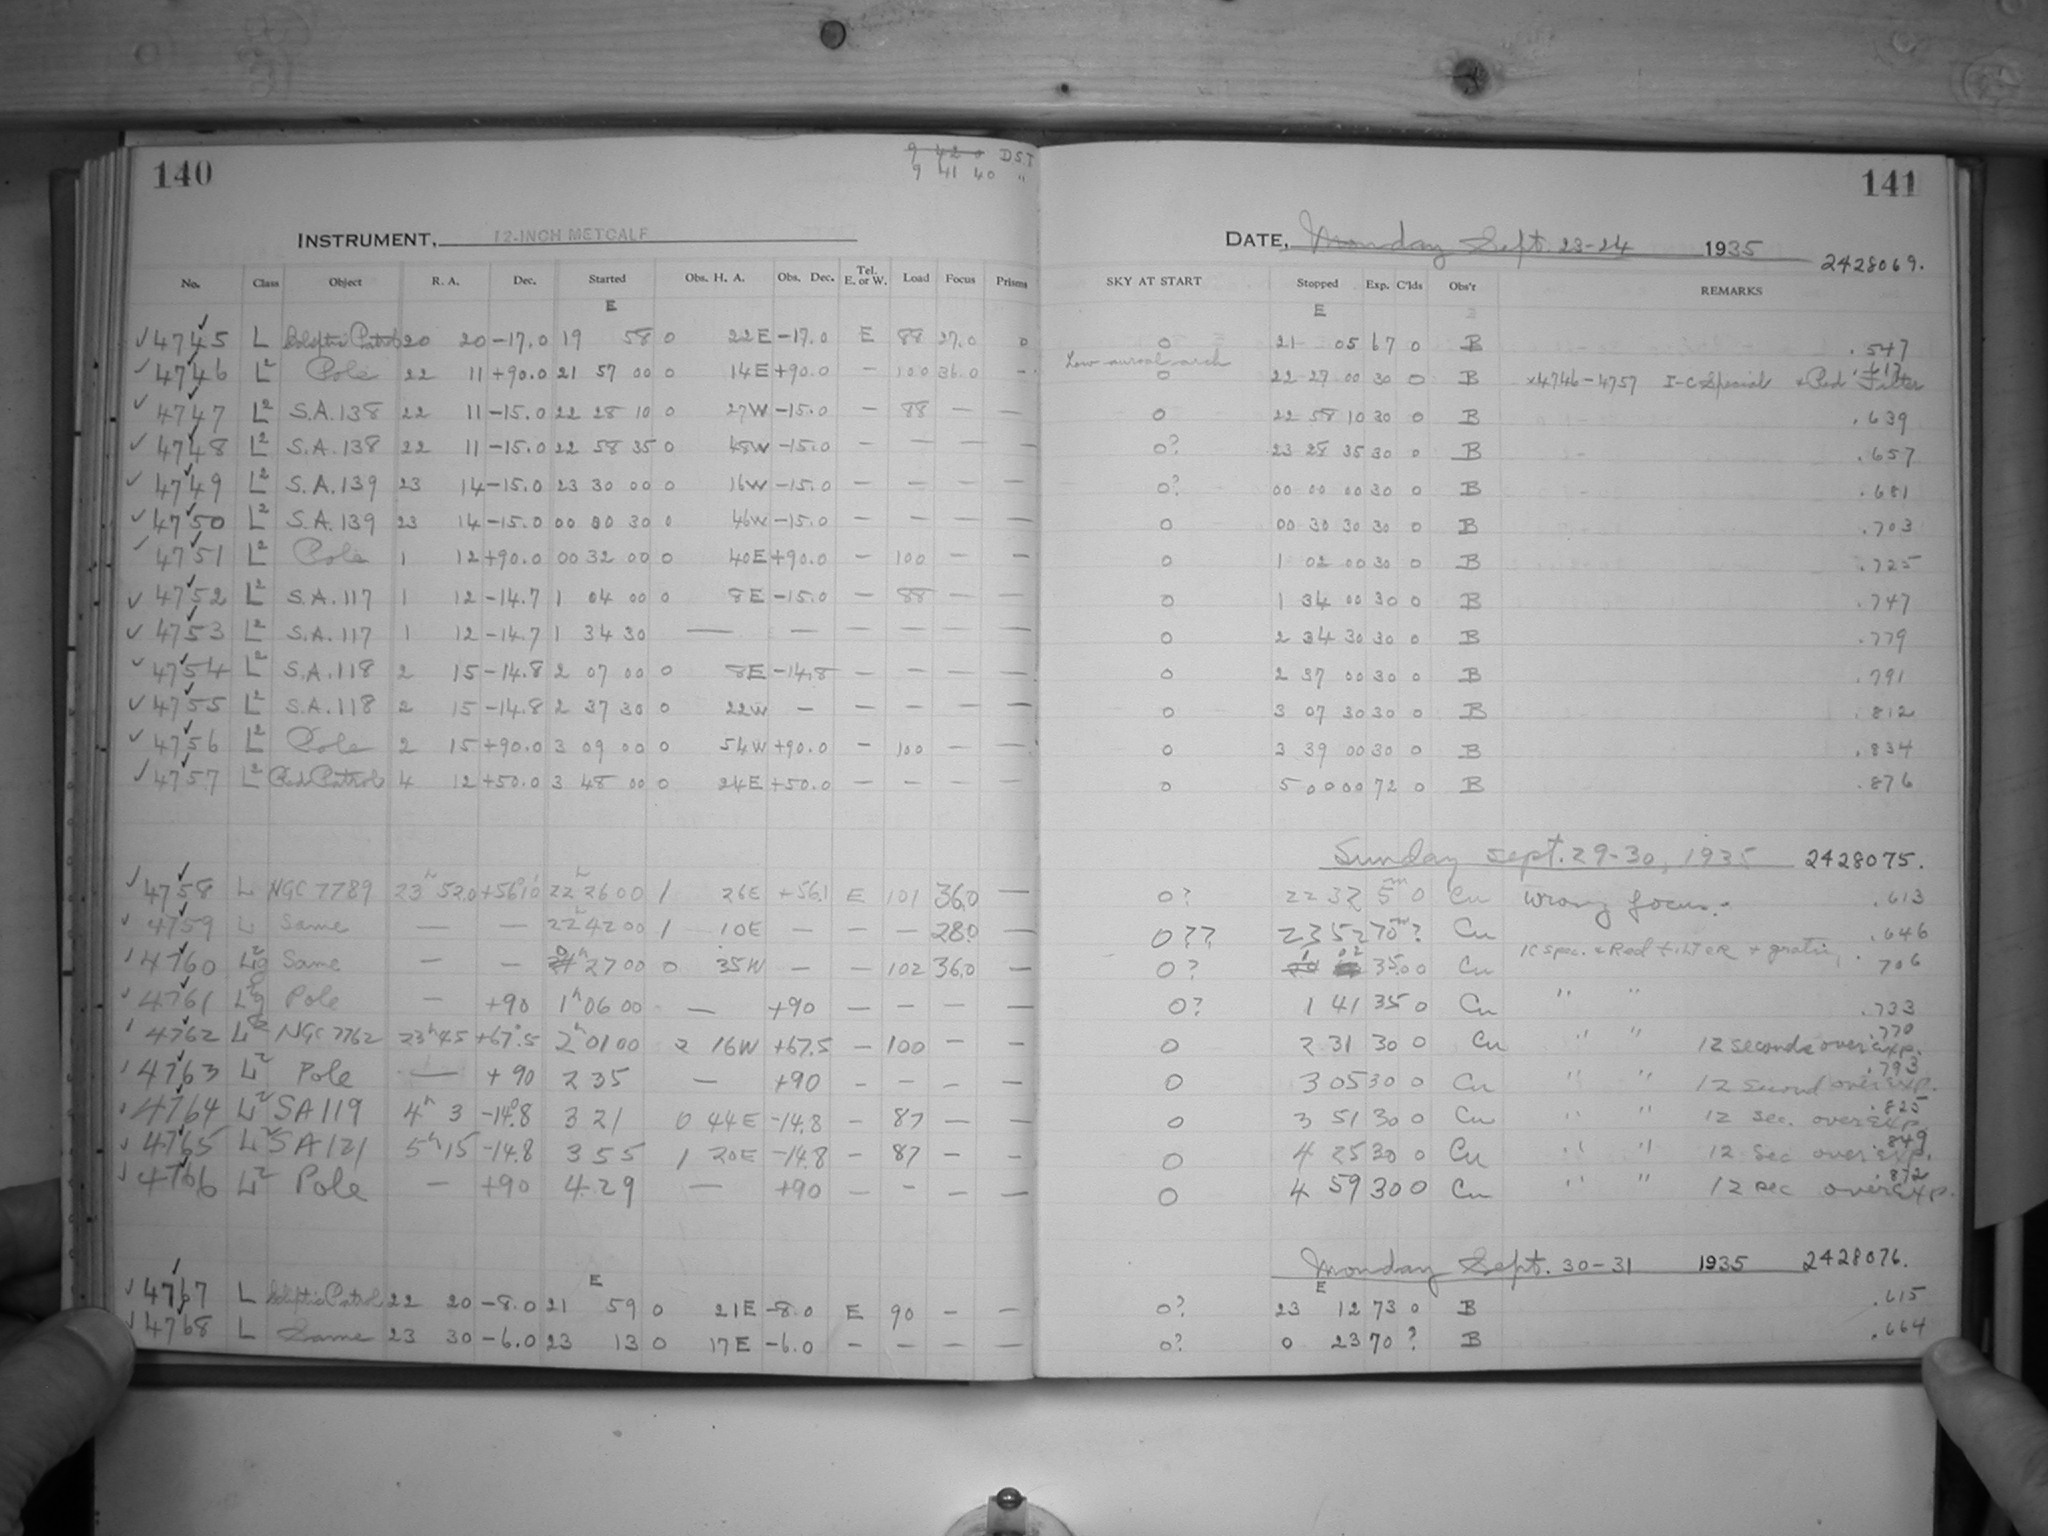 140
9 42 0 DST
9 41 40 "
141
INSTRUMENT, 12-INCH METCALF
DATE, Monday Sept. 23-24 1935 2428069.
No. Class Object R. A. Dec. Started Obs. H. A. Obs. Dec. Tel. E. or W. Load Focus Prisms SKY AT START Stopped Exp. C'lds Obs'r REMARKS
E E
4745 L Ecliptic Patrol 20 20 -17.0 19 58 0 22E -17.0 E 88 27.0 0 0 21 05 67 0 B .547
Low auroral arch
4746 L2 Pole 22 11 +90.0 21 57 00 0 14E +90.0 — 100 36.0 — 0 22 27 00 30 0 B x4746-4757 I-C Special + Red Filter .617
4747 L2 S.A.138 22 11 -15.0 22 28 10 0 27W -15.0 — 88 — — 0 22 58 10 30 0 B .639
4748 L2 S.A.138 22 11 -15.0 22 58 35 0 48W -15.0 — — — — 0? 23 28 35 30 0 B .657
4749 L2 S.A.139 23 14 -15.0 23 30 00 0 16W -15.0 — — — — 0? 00 00 00 30 0 B .681
4750 L2 S.A.139 23 14 -15.0 00 00 30 0 46W -15.0 — — — — 0 00 30 30 30 0 B .703
4751 L2 Pole 1 12 +90.0 00 32 00 0 40E +90.0 — 100 — — 0 1 02 00 30 0 B .725
4752 L2 S.A.117 1 12 -14.7 1 04 00 0 8E -15.0 — 88 — — 0 1 34 00 30 0 B .747
4753 L2 S.A.117 1 12 -14.7 1 34 30 — — — — — — 0 2 34 30 30 0 B .779
4754 L2 S.A.118 2 15 -14.8 2 07 00 0 8E -14.8 — — — — 0 2 37 00 30 0 B .791
4755 L2 S.A.118 2 15 -14.8 2 37 30 0 22W — — — — — 0 3 07 30 30 0 B .812
4756 L2 Pole 2 15 +90.0 3 09 00 0 54W +90.0 — 100 — — 0 3 39 00 30 0 B .834
4757 L2 Red Patrol 4 12 +50.0 3 48 00 0 24E +50.0 — — — — 0 5 00 00 72 0 B .876
Sunday Sept. 29-30, 1935 2428075.
4758 L NGC 7789 23h 52.0 +56°10' 22h 26 00 1 26E +56.1 E 101 36.0 — 0? 22 32 5m 0 Cu Wrong focus. .613
4759 L Same — — 22h 42 00 1 10E — — — 28.0 0?? 23 52 70m ? Cu .646
4760 L2g Same — — 0h 27 00 0 35W — — 102 36.0 — 0? 1 02 35.0 0 Cu IC spec. & Red FILTER + grating .706
4761 L2g Pole — +90 1h 06 00 — +90 — — — — 0? 1 41 35 0 Cu " " .733
4762 L2 NGC 7762 23h 45 +67°.5 2h 01 00 2 16W +67.5 — 100 — — 0 2 31 30 0 Cu " " 12 seconds over exp. .770
4763 L2 Pole — +90 2 35 — +90 — — — — 0 3 05 30 0 Cu " " 12 second over exp. .793
4764 L2 SA 119 4h 3 -14°.8 3 21 0 44E -14.8 — 87 — — 0 3 51 30 0 Cu " " 12 sec. over exp. .825
4765 L2 SA 121 5h 15 -14.8 3 55 1 20E -14.8 — 87 — — 0 4 25 30 0 Cu " " 12 sec over exp. .849
4766 L2 Pole — +90 4 29 — +90 — — — — 0 4 59 30 0 Cu " " 12 sec over exp. .872
Monday Sept. 30-31 1935 2428076.
E E
4767 L Ecliptic Patrol 22 20 -8.0 21 59 0 21E -8.0 E 90 — — 0? 23 12 73 0 B .615
4768 L Same 23 30 -6.0 23 13 0 17E -6.0 — — — — 0? 0 23 70 ? B .664